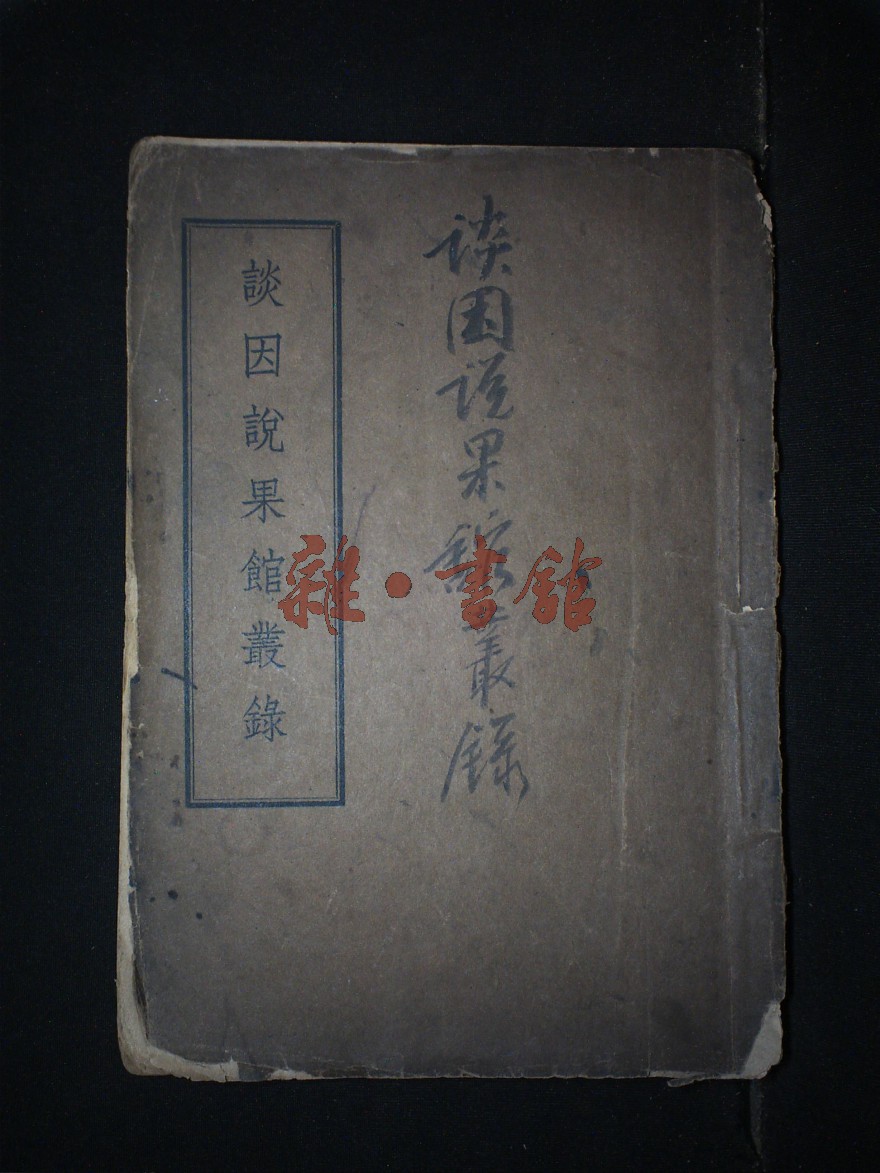 谈因说果館叢錄
談因說果館叢錄
雜·書館